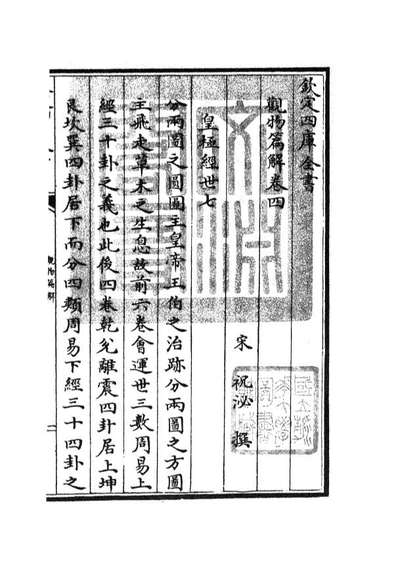 欽定四庫全書
觀物篇解卷四
宋 祝泌 撰
皇極經世七
分兩圖之圓圖主皇帝王伯之治跡分兩圖之方圖
主飛走草木之生息故前六卷會運世三數周易上
經三十卦之義也此後四卷乾兊離震四卦居上坤
艮坎巽四卦居下而分四類周易下經三十四卦之